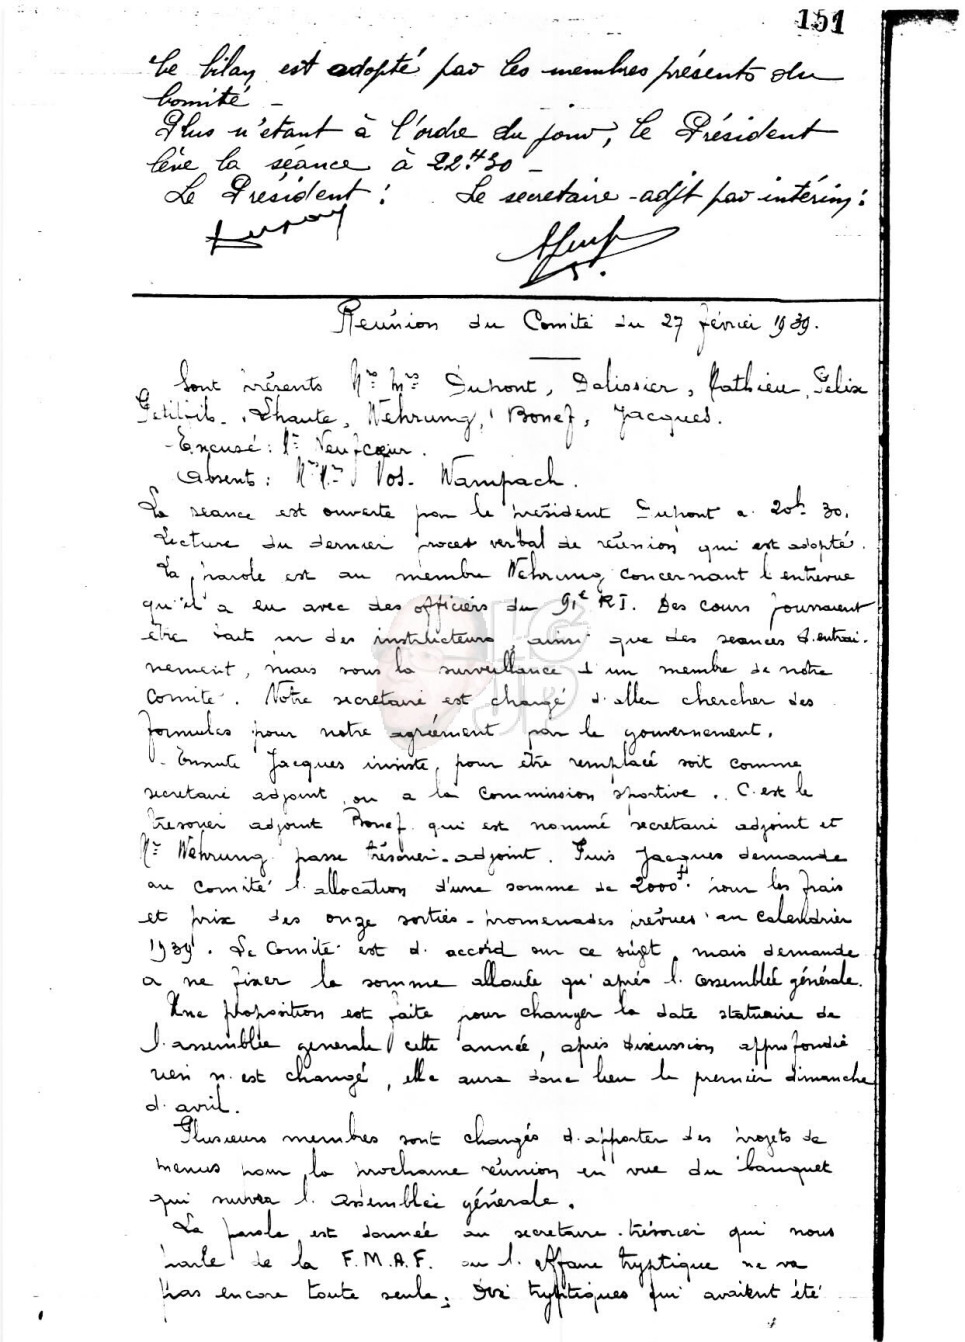 151
Le bilan est adopté par les membres présents du
Comité -
Plus n'étant à l'ordre du jour, le Président
lève la séance à 22H30 -
Le Président : Le secretaire-adjt par intérim :
Reunion du Comité du 27 février 1939.
Sont présents Mrs Mrs Dupont, Dalissier, Mathieu, Felix
Petitfils. Lhaute, Wehrung, Bonef, Jacques.
- Excusé : Mr Neufcœur.
Absents : Mr Mr Vos. Wampach.
La seance est ouverte par le président Dupont a 20h 30.
Lecture du dernier proces verbal de réunion qui est adopté.
La parole est au membre Wehrung concernant l'entrevue
qu'il a eu avec des officiers du 91e R I. Des cours pourraient
être fait par des instructeurs, ainsi que des seances d'entrai-
nement, mais sous la surveillance d'un membre de notre
Comité. Notre secretaire est chargé d'aller chercher des
formules pour notre agréement par le gouvernement.
- Ensuite Jacques insiste, pour être remplacé soit comme
secretaire adjoint, ou a la commission sportive. C'est le
tresorier adjoint Bonef qui est nommé secretaire adjoint et
Mr Wehrung passe trésorier-adjoint. Puis Jacques demande
au Comité l'allocation d'une somme de 2000f. pour les frais
et prix des onze sorties-promenades prévues au calendrier
1939. Le Comité est d'accord sur ce sujet, mais demande
a ne fixer la somme allouée qu'après l'assemblée générale.
Une proposition est faite pour changer la date statuaire de
l'assemblée generale cette année, après discussion approfondie
rien n'est changé, elle aura donc lieu le premier dimanche
d'avril.
Plusieurs membres sont chargés d'apporter des projets de
menus pour la prochaine réunion en vue du banquet
qui suivra l'assemblée générale.
La parole est donnée au secretaire-trésorier qui nous
parle de la F.M.A.F. ou l'affaire tryptique ne va
pas encore toute seule; tryptiques qui avaient été